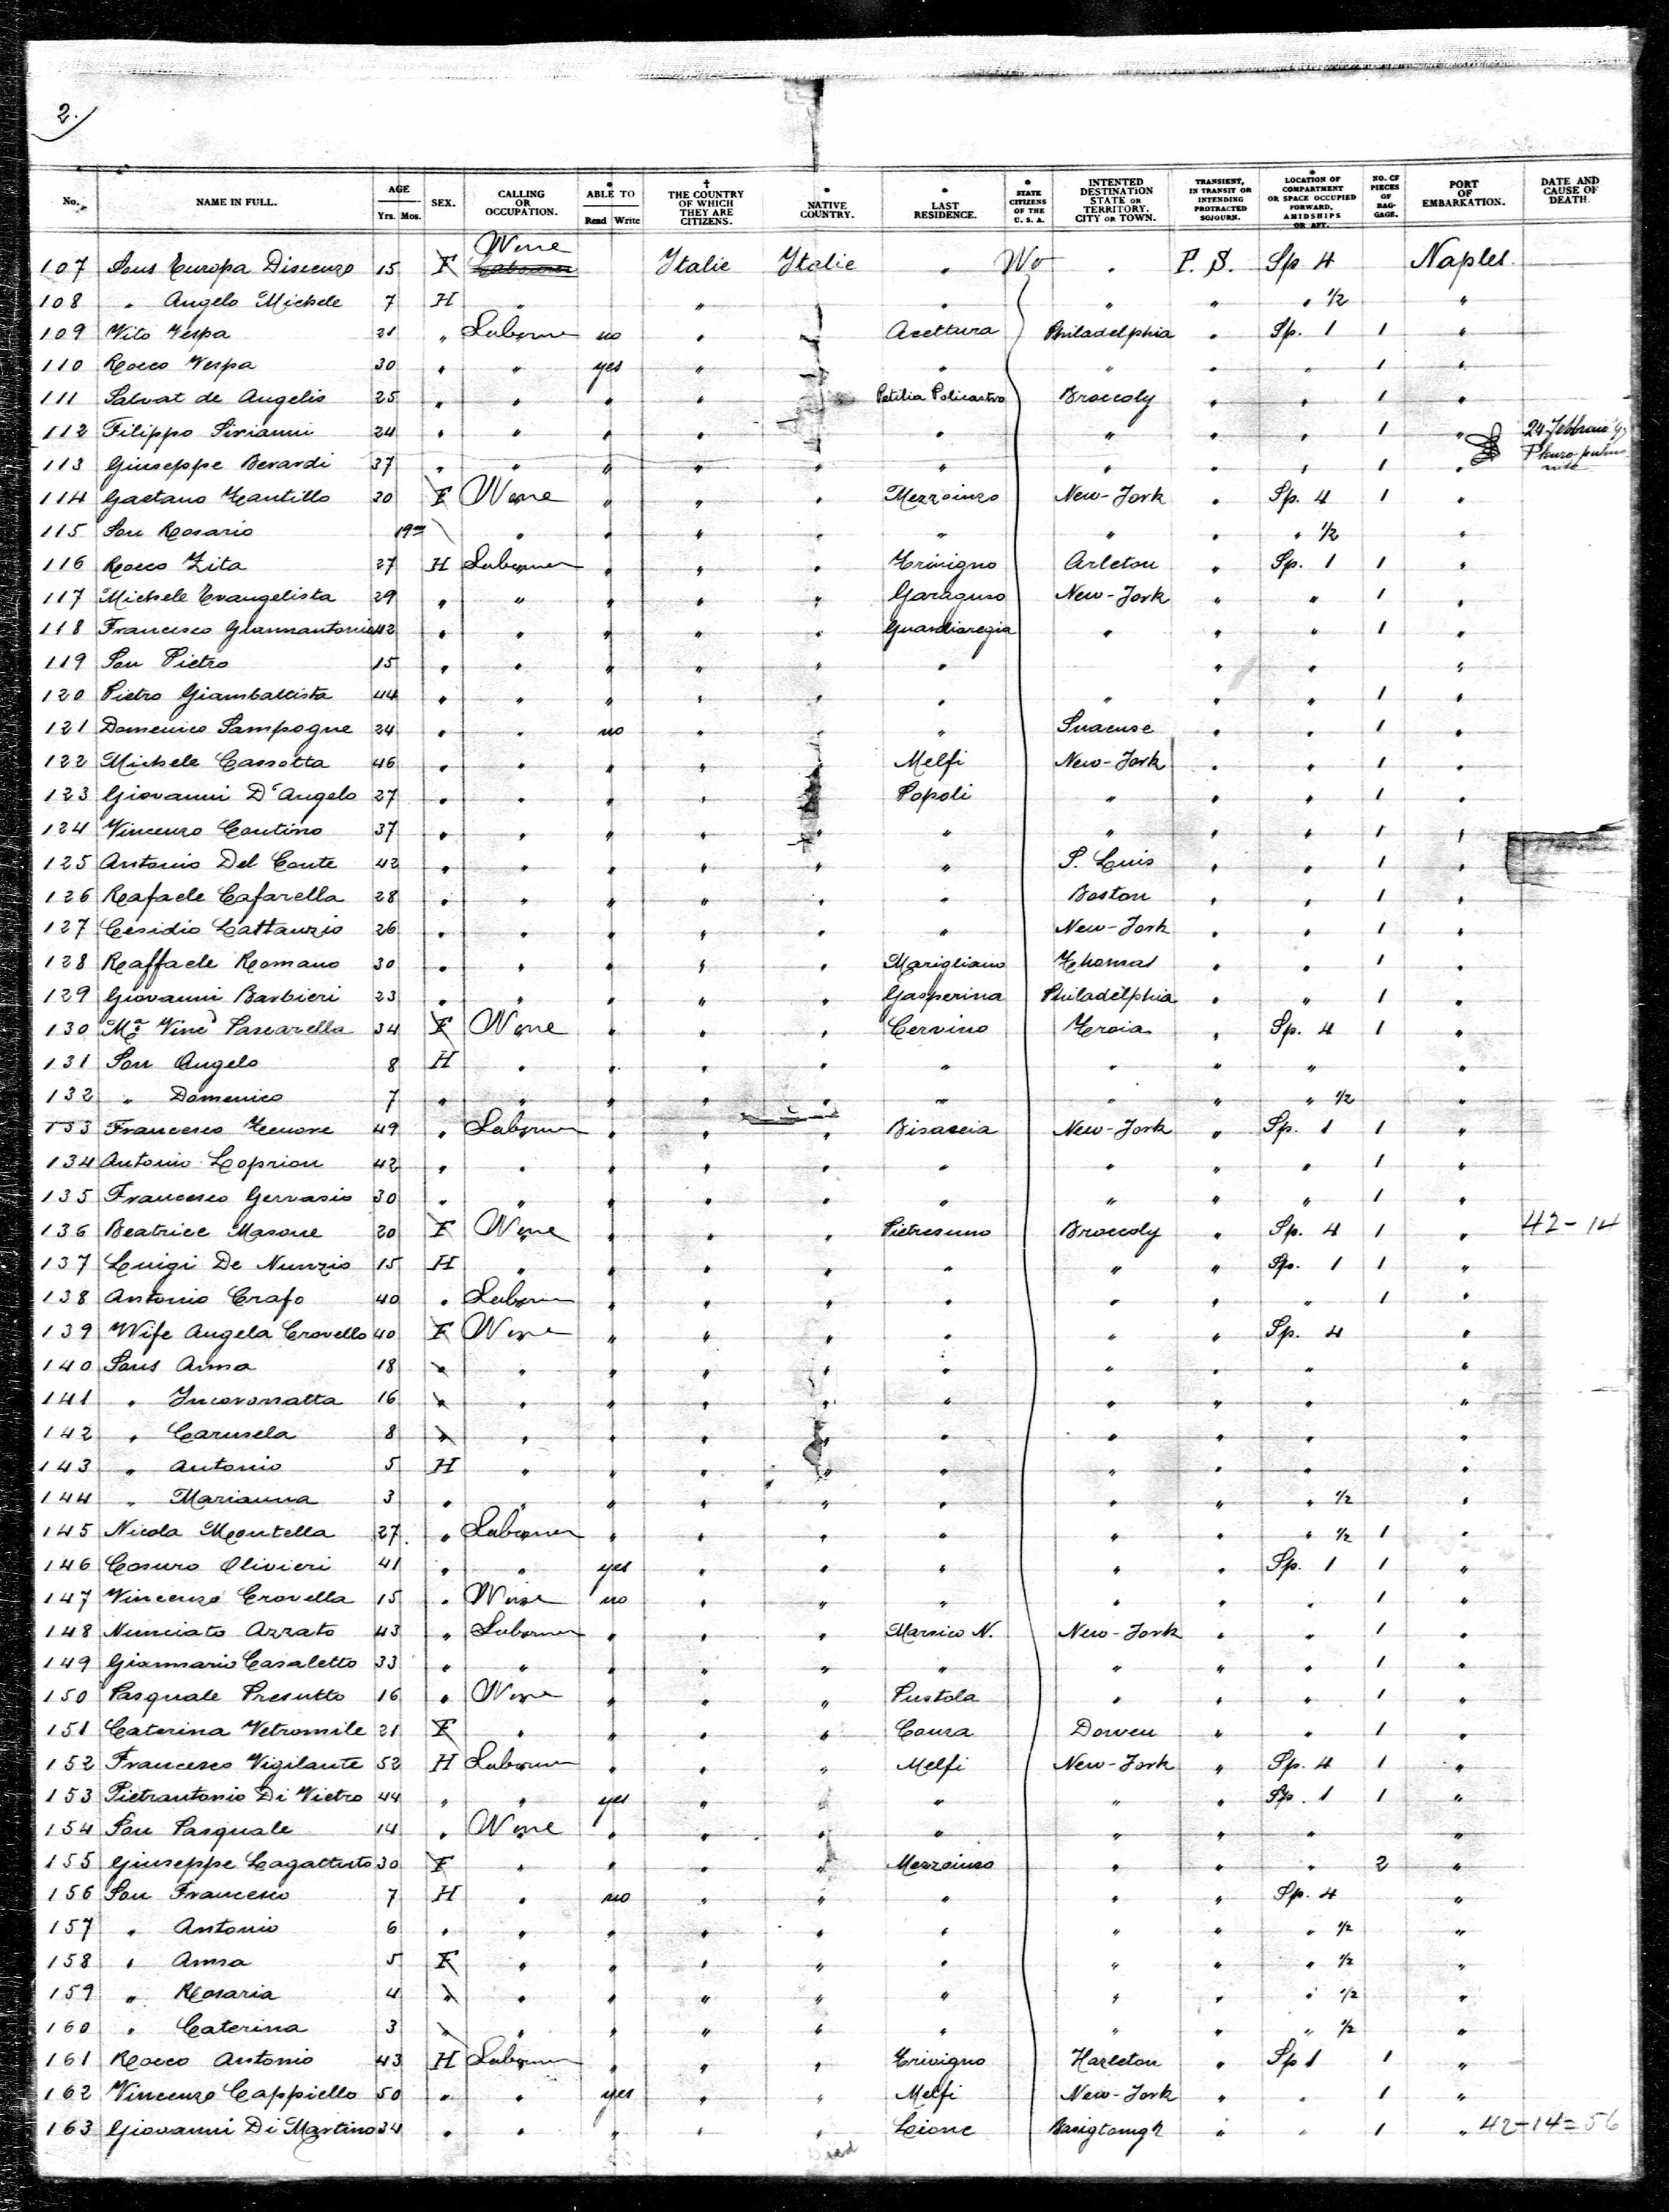 2.
No. NAME IN FULL. AGE Yrs. Mos. SEX. CALLING OR OCCUPATION. ABLE TO Read Write THE COUNTRY OF WHICH THEY ARE CITIZENS. NATIVE COUNTRY. LAST RESIDENCE. STATE CITIZENS OF THE U. S. A. INTENTED DESTINATION STATE OR TERRITORY. CITY OR TOWN. TRANSIENT, IN TRANSIT OR INTENDING PROTRACTED SOJOURN. LOCATION OF COMPARTMENT OR SPACE OCCUPIED FORWARD, AMIDSHIPS OR AFT. NO. OF PIECES OF BAGGAGE. PORT OF EMBARKATION. DATE AND CAUSE OF DEATH.
107 Sons Europa Discenzo 15 F None Italie Italie " No " P. S. Sp 4 Naples
108 " Angelo Michele 7 H " " " " " " " 1/2 "
109 Vito Vespa 21 " Laborer no " " Acettura Philadelphia " Sp. 1 1 "
110 Rocco Vespa 30 " " yes " " " " " " 1 "
111 Salvat de Angelis 25 " " " " " Petilia Policastro Broccoly " " 1 "
112 Filippo Sirianni 24 " " " " " " " " " 1 " 24 Febbraio
113 Giuseppe Berardi 37 " " " " " " " " " 1 "
114 Gaetano 20 F None " " " Mezzoiuso New-York " Sp. 4 1 "
115 Son Rosario 19m " " " " " " " " 1/2 "
116 Rocco Zita 27 H Laborer " " " Trivigno Arleton " Sp. 1 1 "
117 Michele Evangelista 29 " " " " " Garaguso New-York " " 1 "
118 Francesco Giannantonio 42 " " " " " Guardiaregia " " " 1 "
119 Son Pietro 15 " " " " " " " " "
120 Pietro Giambattista 44 " " " " " " " " " 1 "
121 Domenico Sampogne 24 " " no " " " Suacuse " " 1 "
122 Michele Cassotta 46 " " " " " Melfi New-York " " 1 "
123 Giovanni D'Angelo 27 " " " " " Popoli " " " 1 "
124 Vincenzo Contino 37 " " " " " " " " " 1 "
125 Antonio Del Conte 42 " " " " " " S. Luis " " 1 "
126 Rafaele Cafarella 28 " " " " " " Boston " " 1 "
127 Cesidio Lattanzio 26 " " " " " " New-York " " 1 "
128 Raffaele Romano 30 " " " " " Marigliano Thomas " " 1 "
129 Giovanni Barbieri 23 " " " " " Gasperina Philadelphia " " 1 "
130 Ma Vinc Pascarella 34 F None " " " Cervino Troia " Sp. 4 1 "
131 Son Angelo 8 H " " " " " " " " "
132 " Domenico 7 " " " " " " " " " 1/2 "
133 Francesco Tenore 49 " Laborer " " " Bisaccia New-York " Sp. 1 1 "
134 Antonio Loprion 42 " " " " " " " " " 1 "
135 Francesco Gervasio 30 " " " " " " " " " 1 "
136 Beatrice Masone 20 F None " " " Broccoly " Sp. 4 1 " 42-14
137 Luigi De Nunzio 15 H " " " " " " " Sp. 1 1 "
138 Antonio Crafo 40 " Laborer " " " " " " " 1 "
139 Wife Angela Crovello 40 F None " " " " " " Sp. 4 "
140 Sons Anna 18 " " " " " " " " " "
141 " Incoronatta 16 " " " " " " " " " "
142 " Carmela 8 " " " " " " " " " "
143 " Antonio 5 H " " " " " " " " "
144 " Marianna 3 " " " " " " " " " 1/2 "
145 Nicola Montella 27 " Laborer " " " " " " " 1/2 1 "
146 Cosimo Olivieri 41 " " yes " " " " " Sp. 1 1 "
147 Vincenzo Crovella 15 " None no " " " " " " 1 "
148 Nunciato Azzato 43 " Laborer " " " Marsico N. New-York " " 1 "
149 Gianmario Casaletto 33 " " " " " " " " " 1 "
150 Pasquale Presutto 16 " None " " " Pustola " " " 1 "
151 Caterina Vetromile 21 F " " " " Conza Dowen " " 1 "
152 Francesco Vigilante 52 H Laborer " " " Melfi New-York " Sp. 4 1 "
153 Pietrantonio Di Vietro 44 " " yes " " " " " Sp. 1 1 "
154 Son Pasquale 14 " None " " " " " " " "
155 Giuseppe Lagattuto 30 F " " " " Mezzoiuso " " " 2 "
156 Son Francesco 7 H " no " " " " " Sp. 4 "
157 " Antonio 6 " " " " " " " " " 1/2 "
158 " Anna 5 F " " " " " " " " 1/2 "
159 " Rosaria 4 " " " " " " " " " 1/2 "
160 " Caterina 3 " " " " " " " " " 1/2 "
161 Rocco Antonio 43 H Laborer " " " Trivigno Hazleton " Sp 1 1 "
162 Vincenzo Cappiello 50 " " yes " " Melfi New-York " " 1 "
163 Giovanni Di Martino 34 " " " " " Cione " " 1 " 42-14=56